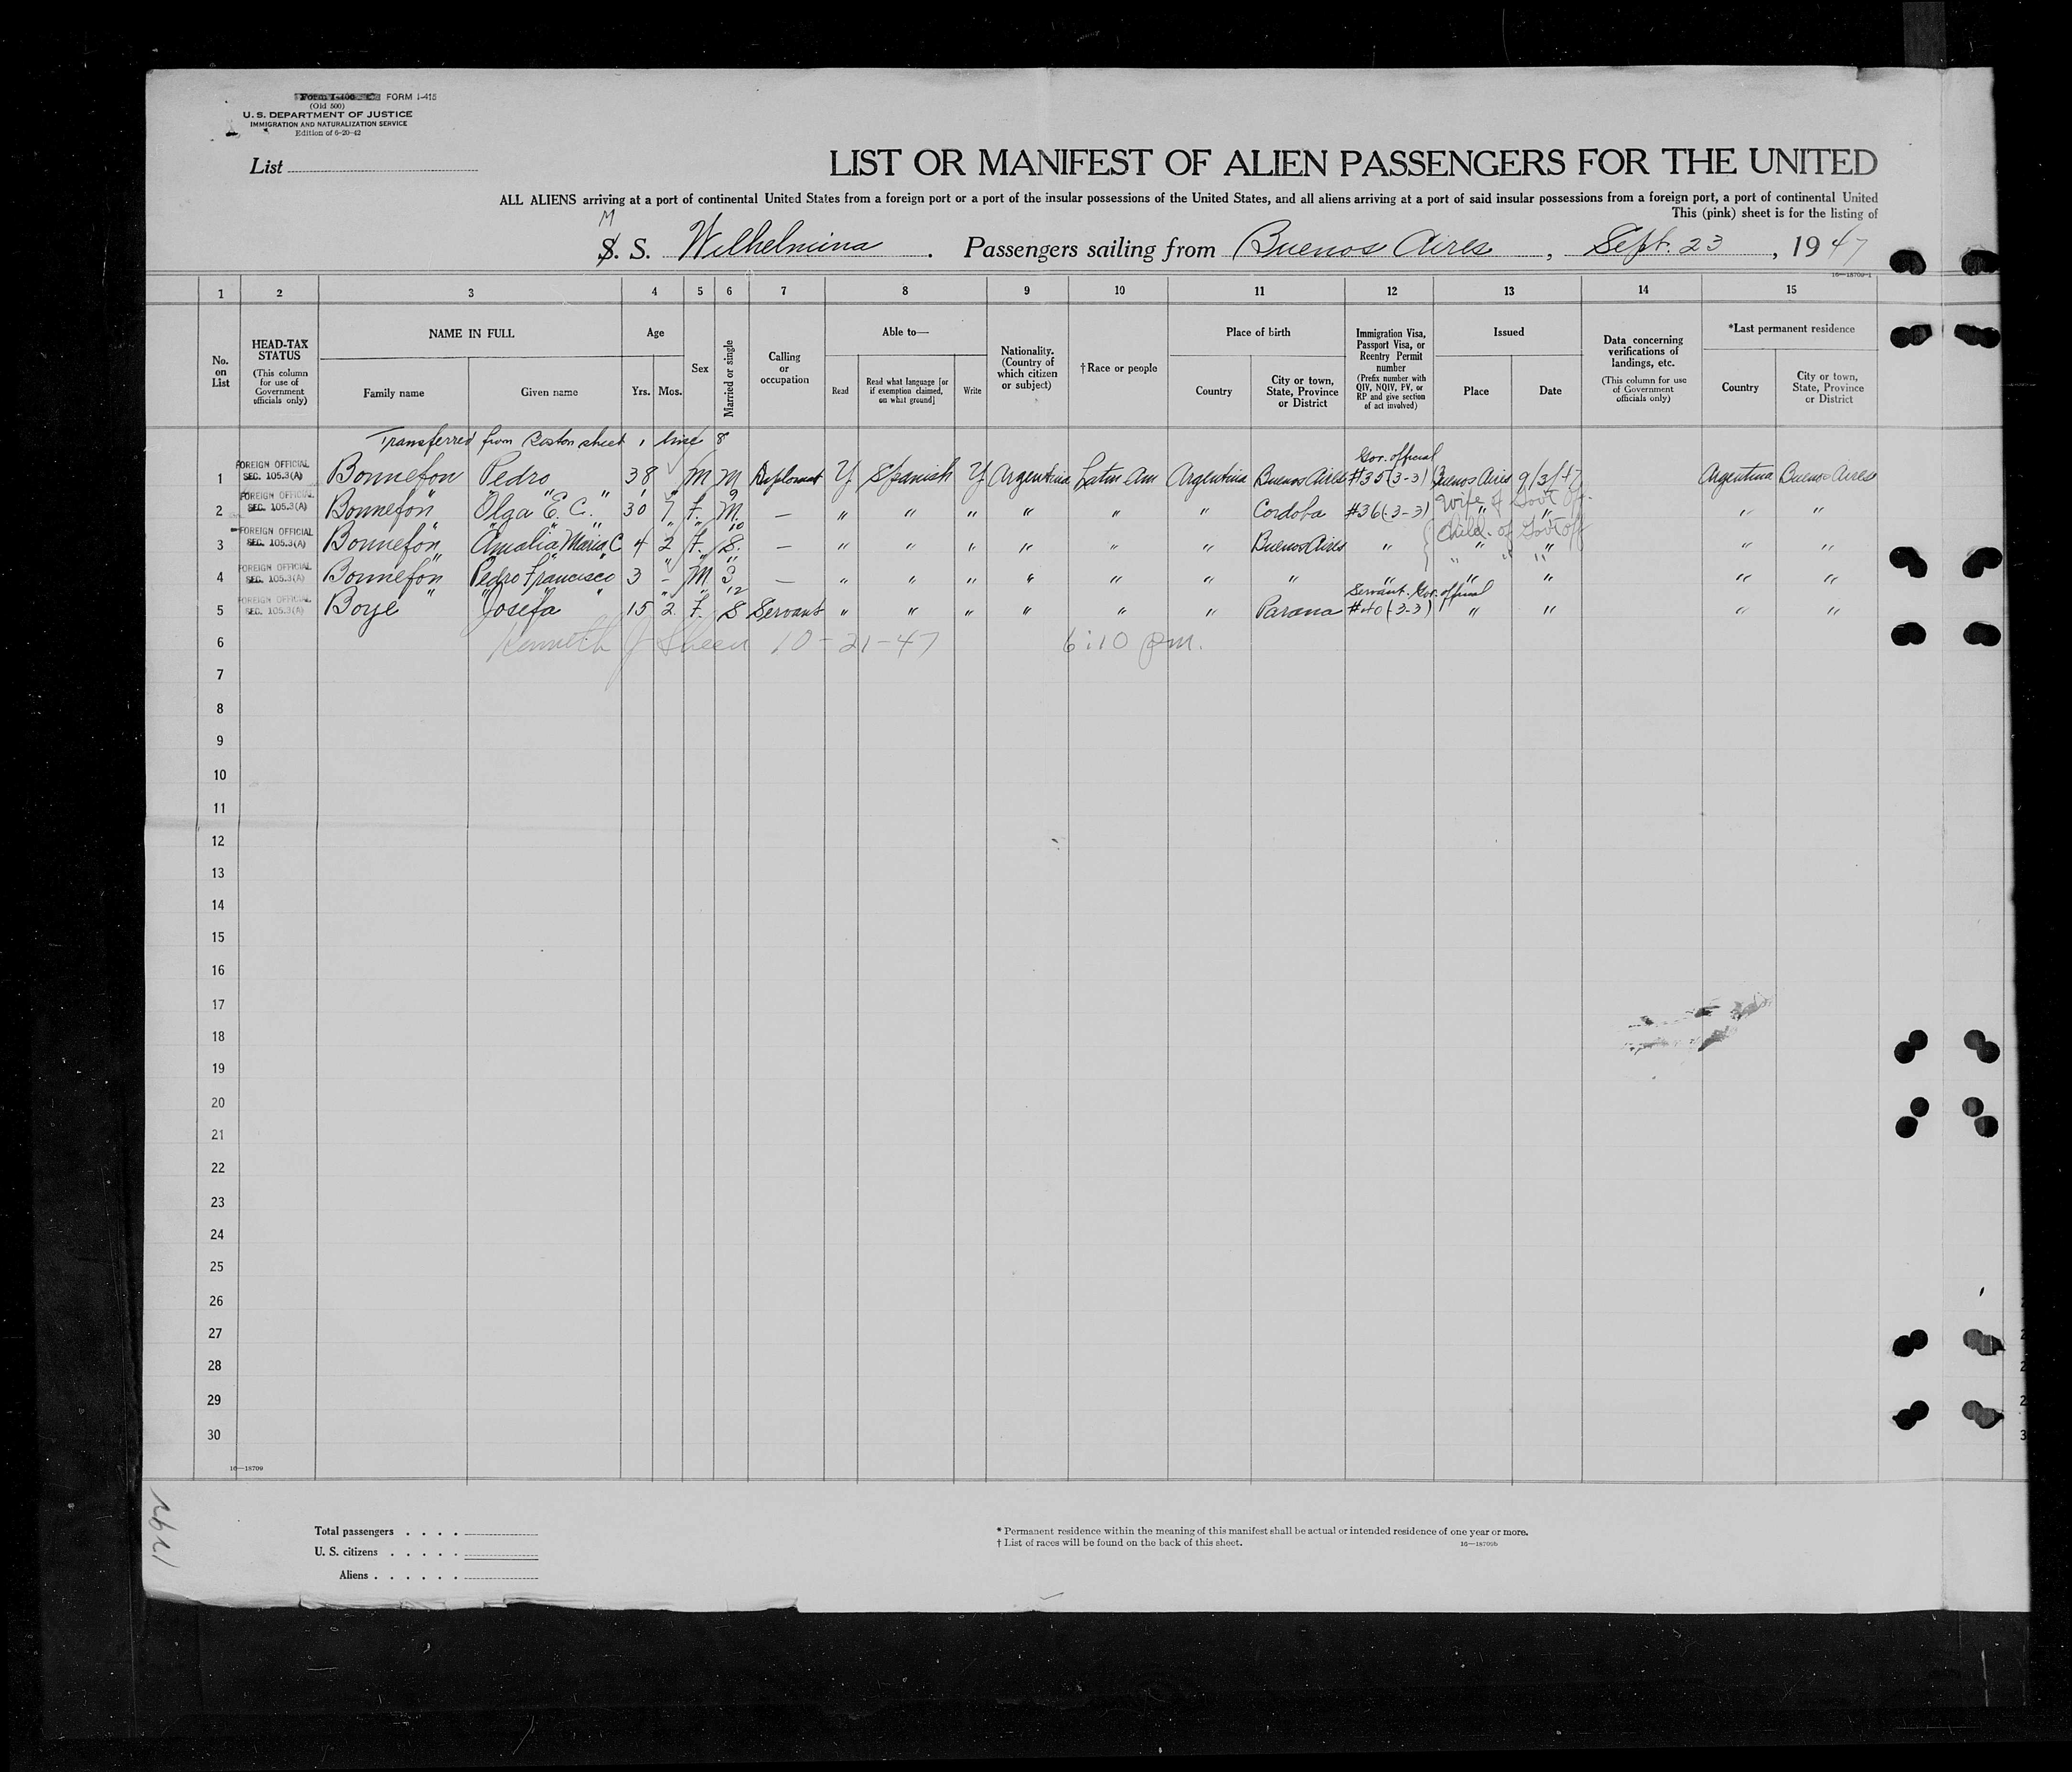 Form I-400 C FORM I-415
(Old 500)
U. S. DEPARTMENT OF JUSTICE
IMMIGRATION AND NATURALIZATION SERVICE
Edition of 6-20-42
List
LIST OR MANIFEST OF ALIEN PASSENGERS FOR THE UNITED
ALL ALIENS arriving at a port of continental United States from a foreign port or a port of the insular possessions of the United States, and all aliens arriving at a port of said insular possessions from a foreign port, a port of continental United
This (pink) sheet is for the listing of
M
S. S. Wilhelmina . Passengers sailing from Buenos Aires , Sept. 23 , 19 47
16—18709-1
1 2 3 4 5 6 7 8 9 10 11 12 13 14 15
No. on List
HEAD-TAX STATUS (This column for use of Government officials only)
NAME IN FULL
Family name Given name
Age
Yrs. Mos.
Sex
Married or single
Calling or occupation
Able to—
Read Read what language [or if exemption claimed, on what ground] Write
Nationality. (Country of which citizen or subject)
†Race or people
Place of birth
Country City or town, State, Province or District
Immigration Visa, Passport Visa, or Reentry Permit number (Prefix number with QIV, NQIV, PV, or RP and give section of act involved)
Issued
Place Date
Data concerning verifications of landings, etc. (This column for use of Government officials only)
*Last permanent residence
Country City or town, State, Province or District
Transferred from Boston sheet 1 line 8
Gov. official
1 FOREIGN OFFICIAL SEC. 105.3(A) Bonnefon Pedro 38 M M Diplomat Y Spanish Y Argentina Latin Am Argentina Buenos Aires #35(3-3) Buenos Aires 9/3/47 Argentina Buenos Aires
" " " " 9
Wife of Govt Off.
2 FOREIGN OFFICIAL SEC. 105.3(A) Bonnefon Olga E. C. 30 7 F. M. — " " " " " " Cordoba #36(3-3) " " " "
" " " " 10
Child. of Govt off
3 FOREIGN OFFICIAL SEC. 105.3(A) Bonnefon Amalia Maria C 4 2 F. S. — " " " " " " Buenos Aires " " " " "
" " " " 11
4 FOREIGN OFFICIAL SEC. 105.3(A) Bonnefon Pedro Francisco 3 - M S — " " " " " " " " " " " "
" " " " 12
Servant. Gov. official
5 FOREIGN OFFICIAL SEC. 105.3(A) Boye Josefa 15 2 F. S Servant " " " " " " Parana #40(3-3) " " " "
6 Kenneth J Sheen 10-21-47 6:10 pm.
7
8
9
10
11
12
13
14
15
16
17
18
19
20
21
22
23
24
25
26
27
28
29
30
16—18709
Total passengers . . . .
U. S. citizens . . . . .
Aliens . . . . . .
* Permanent residence within the meaning of this manifest shall be actual or intended residence of one year or more.
† List of races will be found on the back of this sheet.
16—18709b